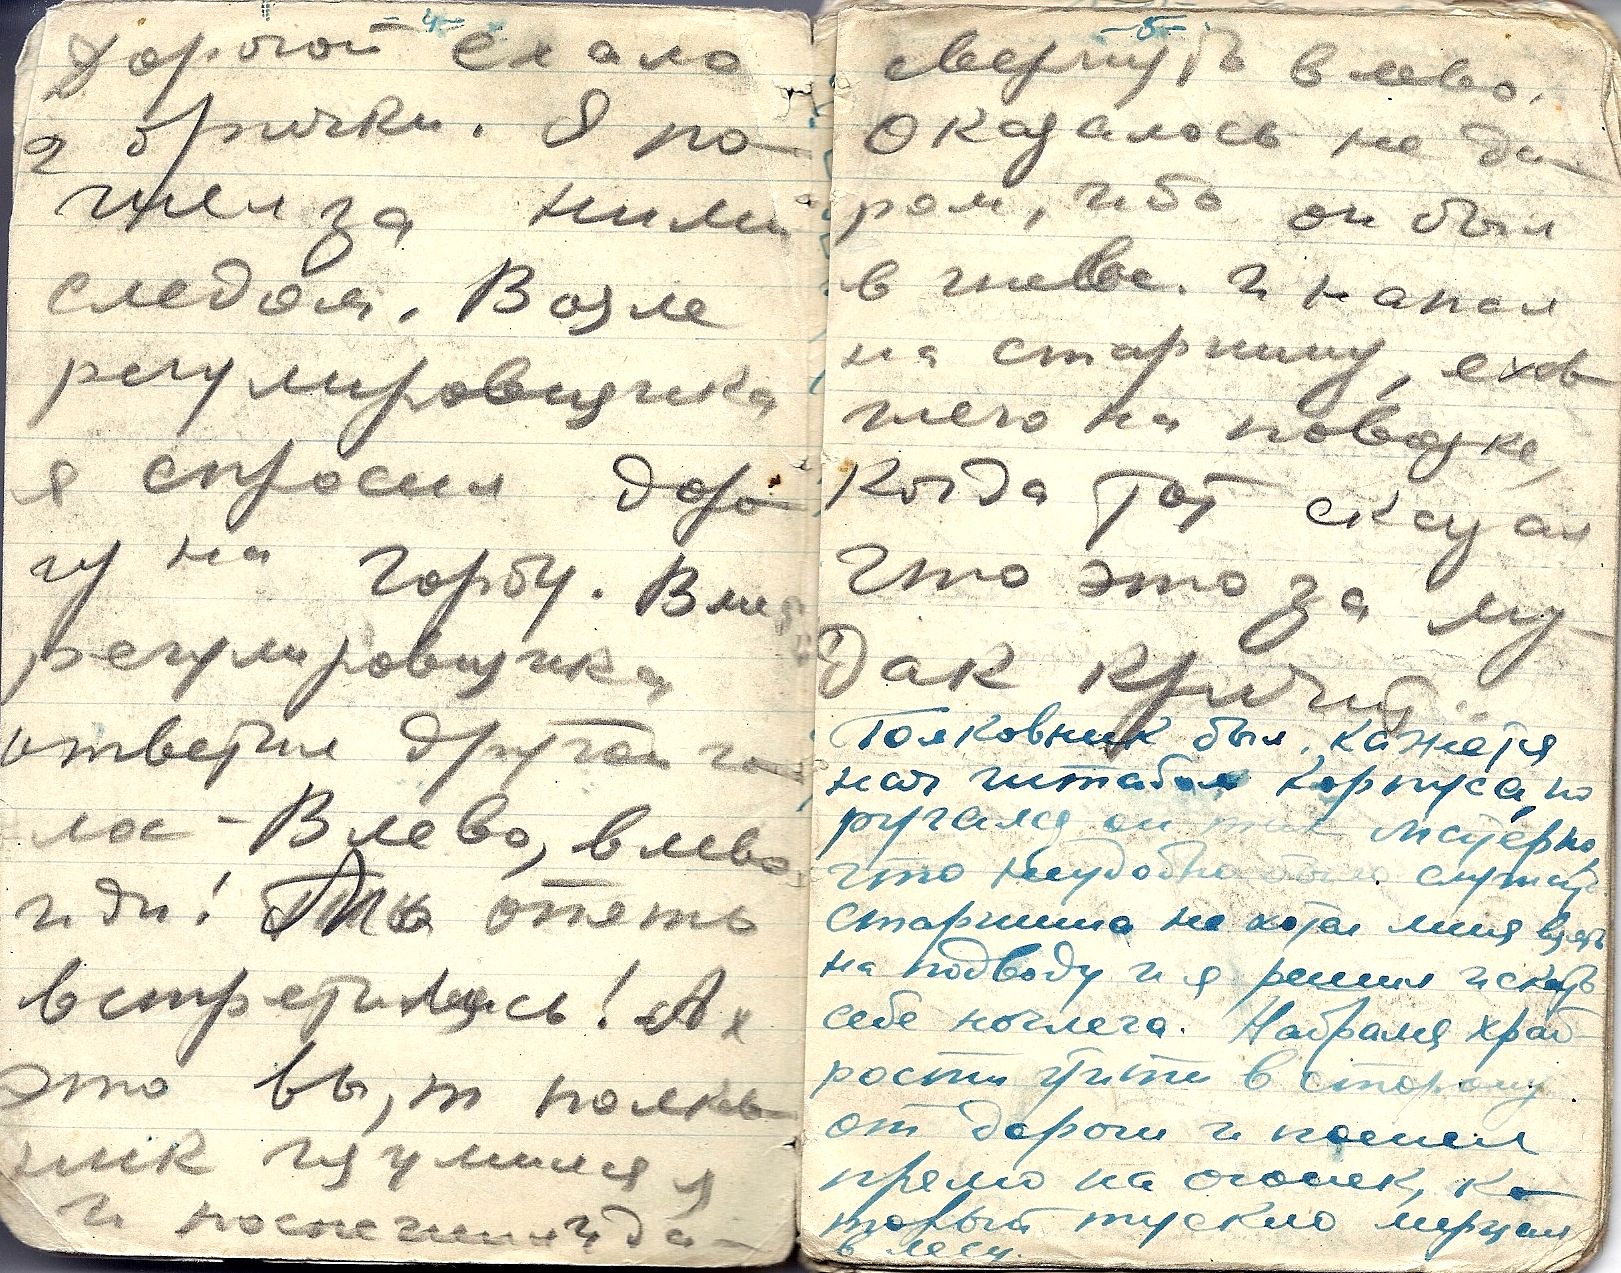 -4-
Дорогой ехало
2 брички. Я по-
шел за ними
следом. Возле
регулировщика
я спросил доро-
гу на Горбу. Вместо
регулировщика
ответил другой го-
лос - Влево, влево
иди! Мы опять
встретились! Ах
это вы, т полков
ник изумился я
и поспешил да-
-5-
свернуть влево.
Оказалось не да-
ром, ибо он был
в гневе. И напал
на старшину, ехав
шего на повозке,
Когда тот сказал
что это за му-
дак кричит..
Полковник был, кажется
нач штабом корпуса, но
ругался он так матерно
что неудобно было слушать
старшина не хотел меня взять
на подводу и я решил искать
себе ночлега. Набрался храб-
рости уйти в сторону
от дороги и пошел
прямо на огонек, ко-
торый тускло мерцал
в лесу.